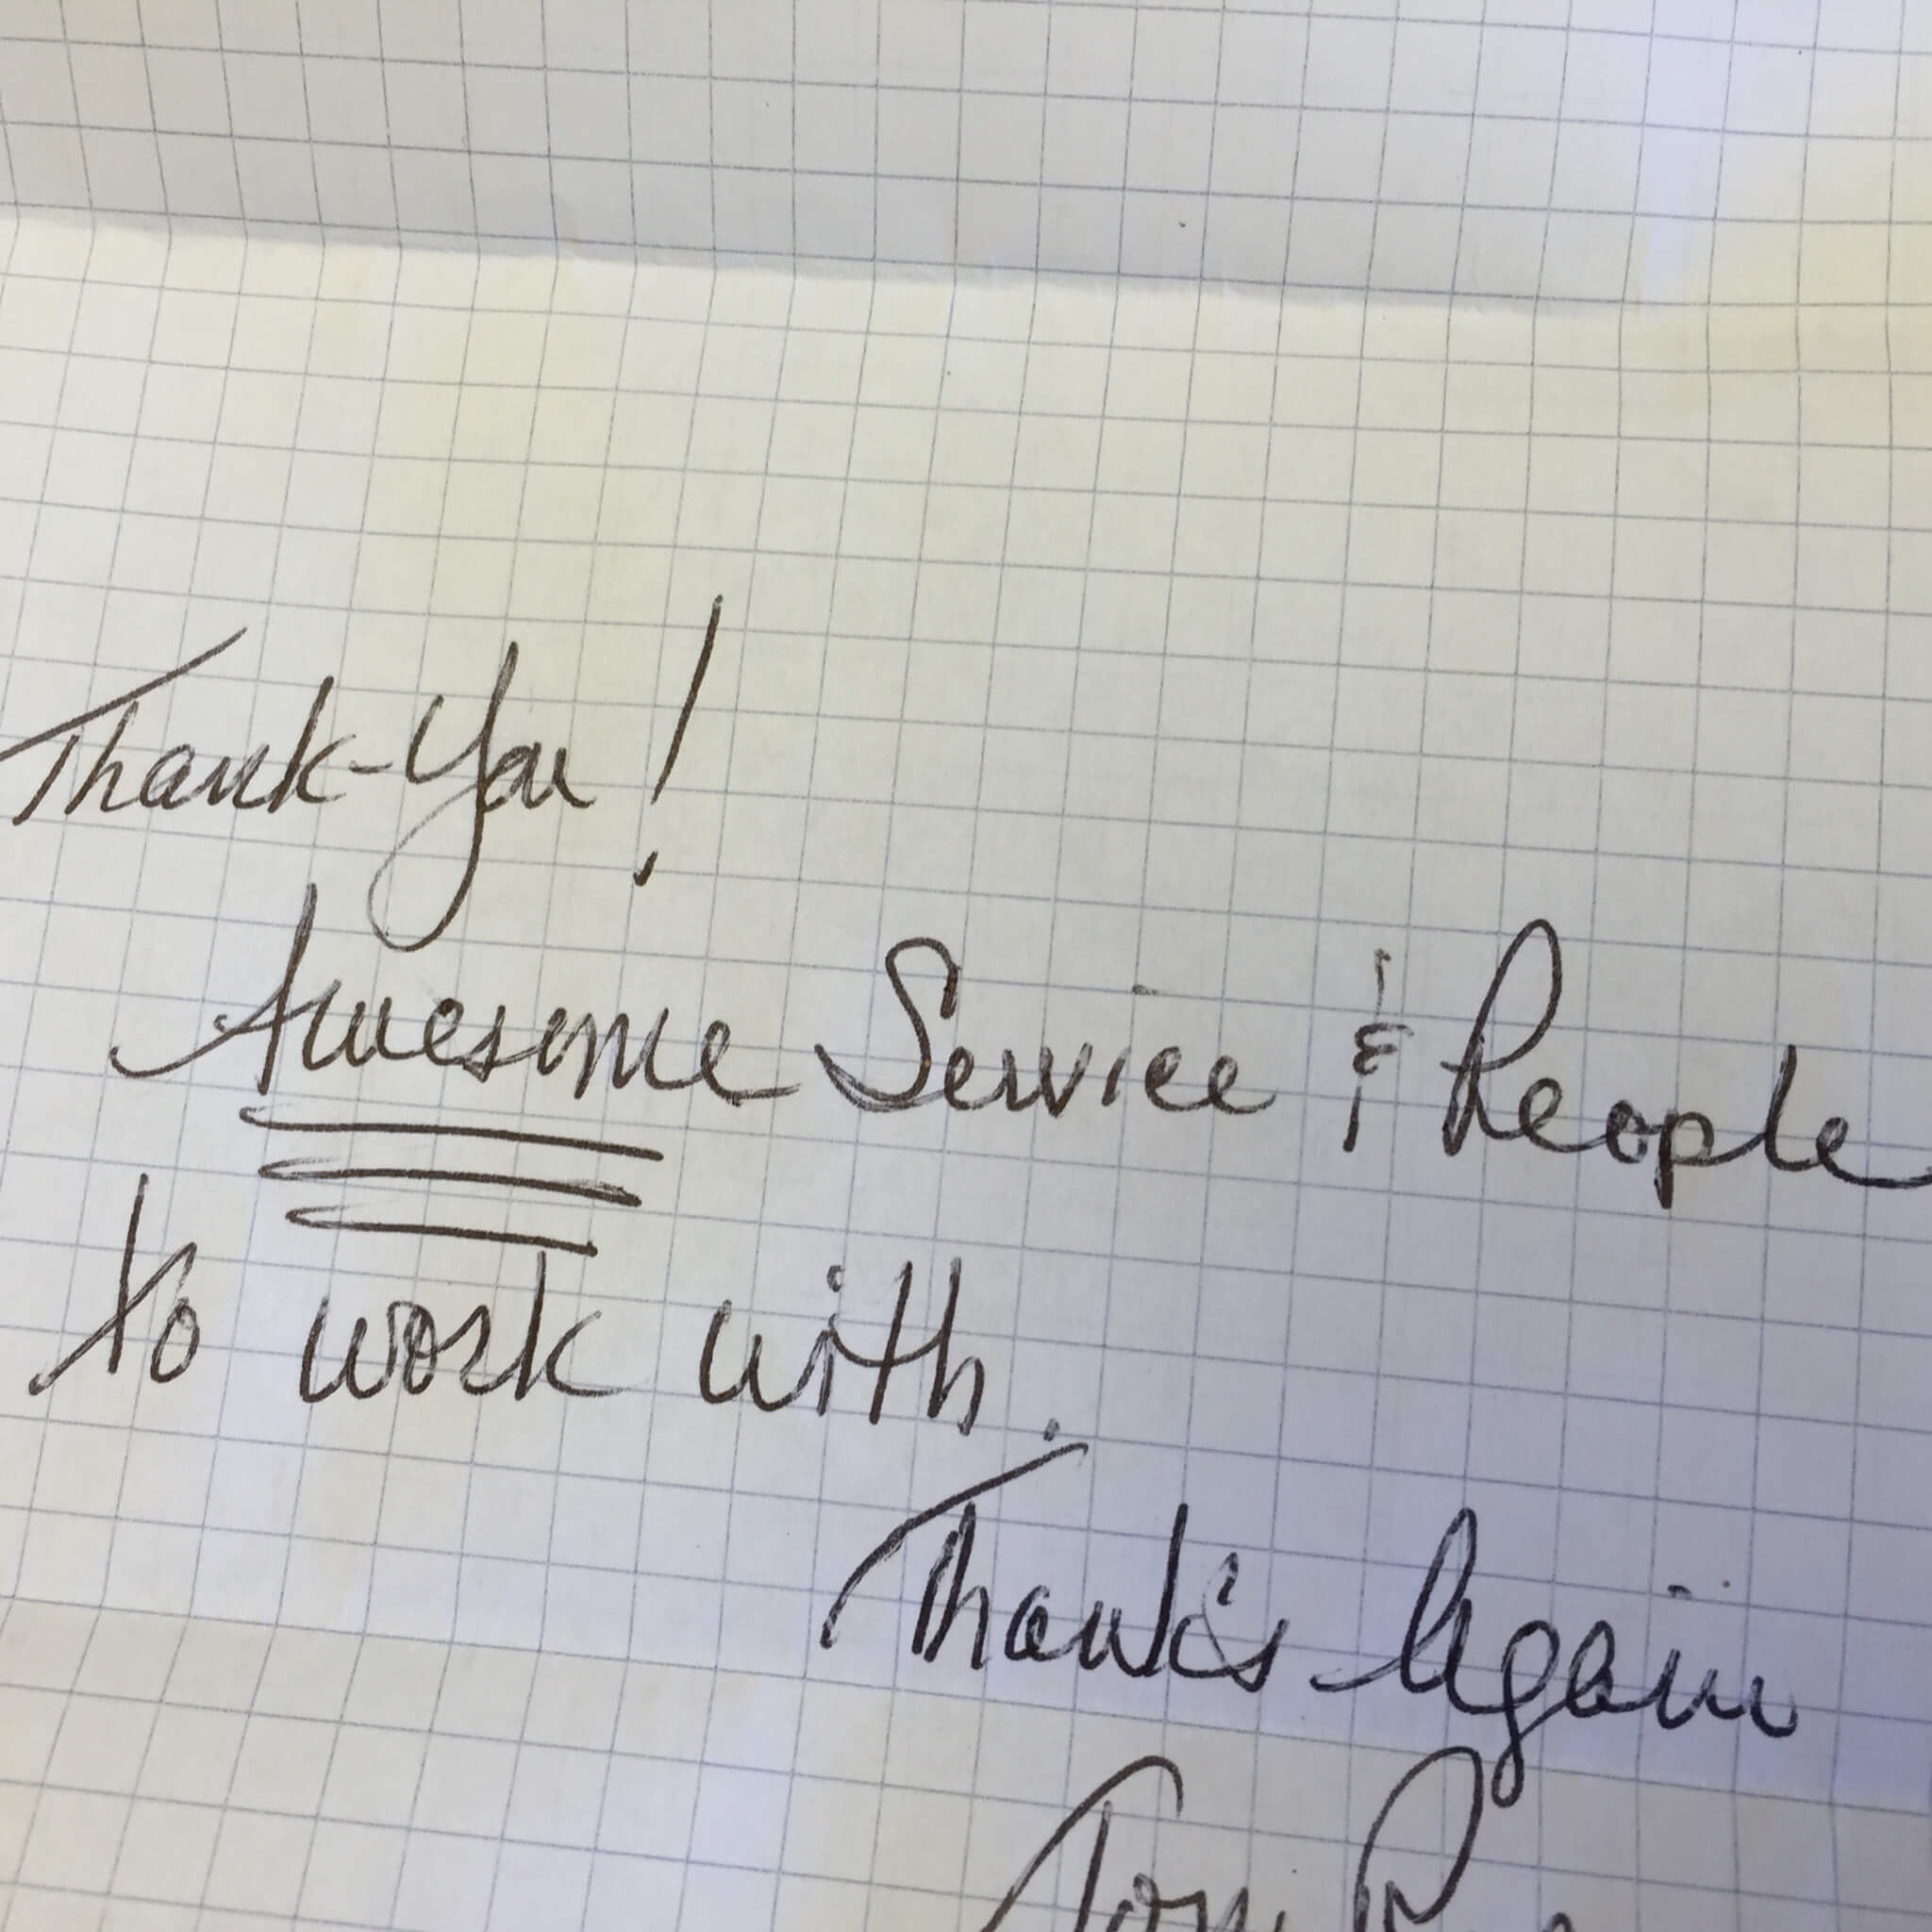 Thank-You!
Awesome Service & People
to work with.
Thanks Again